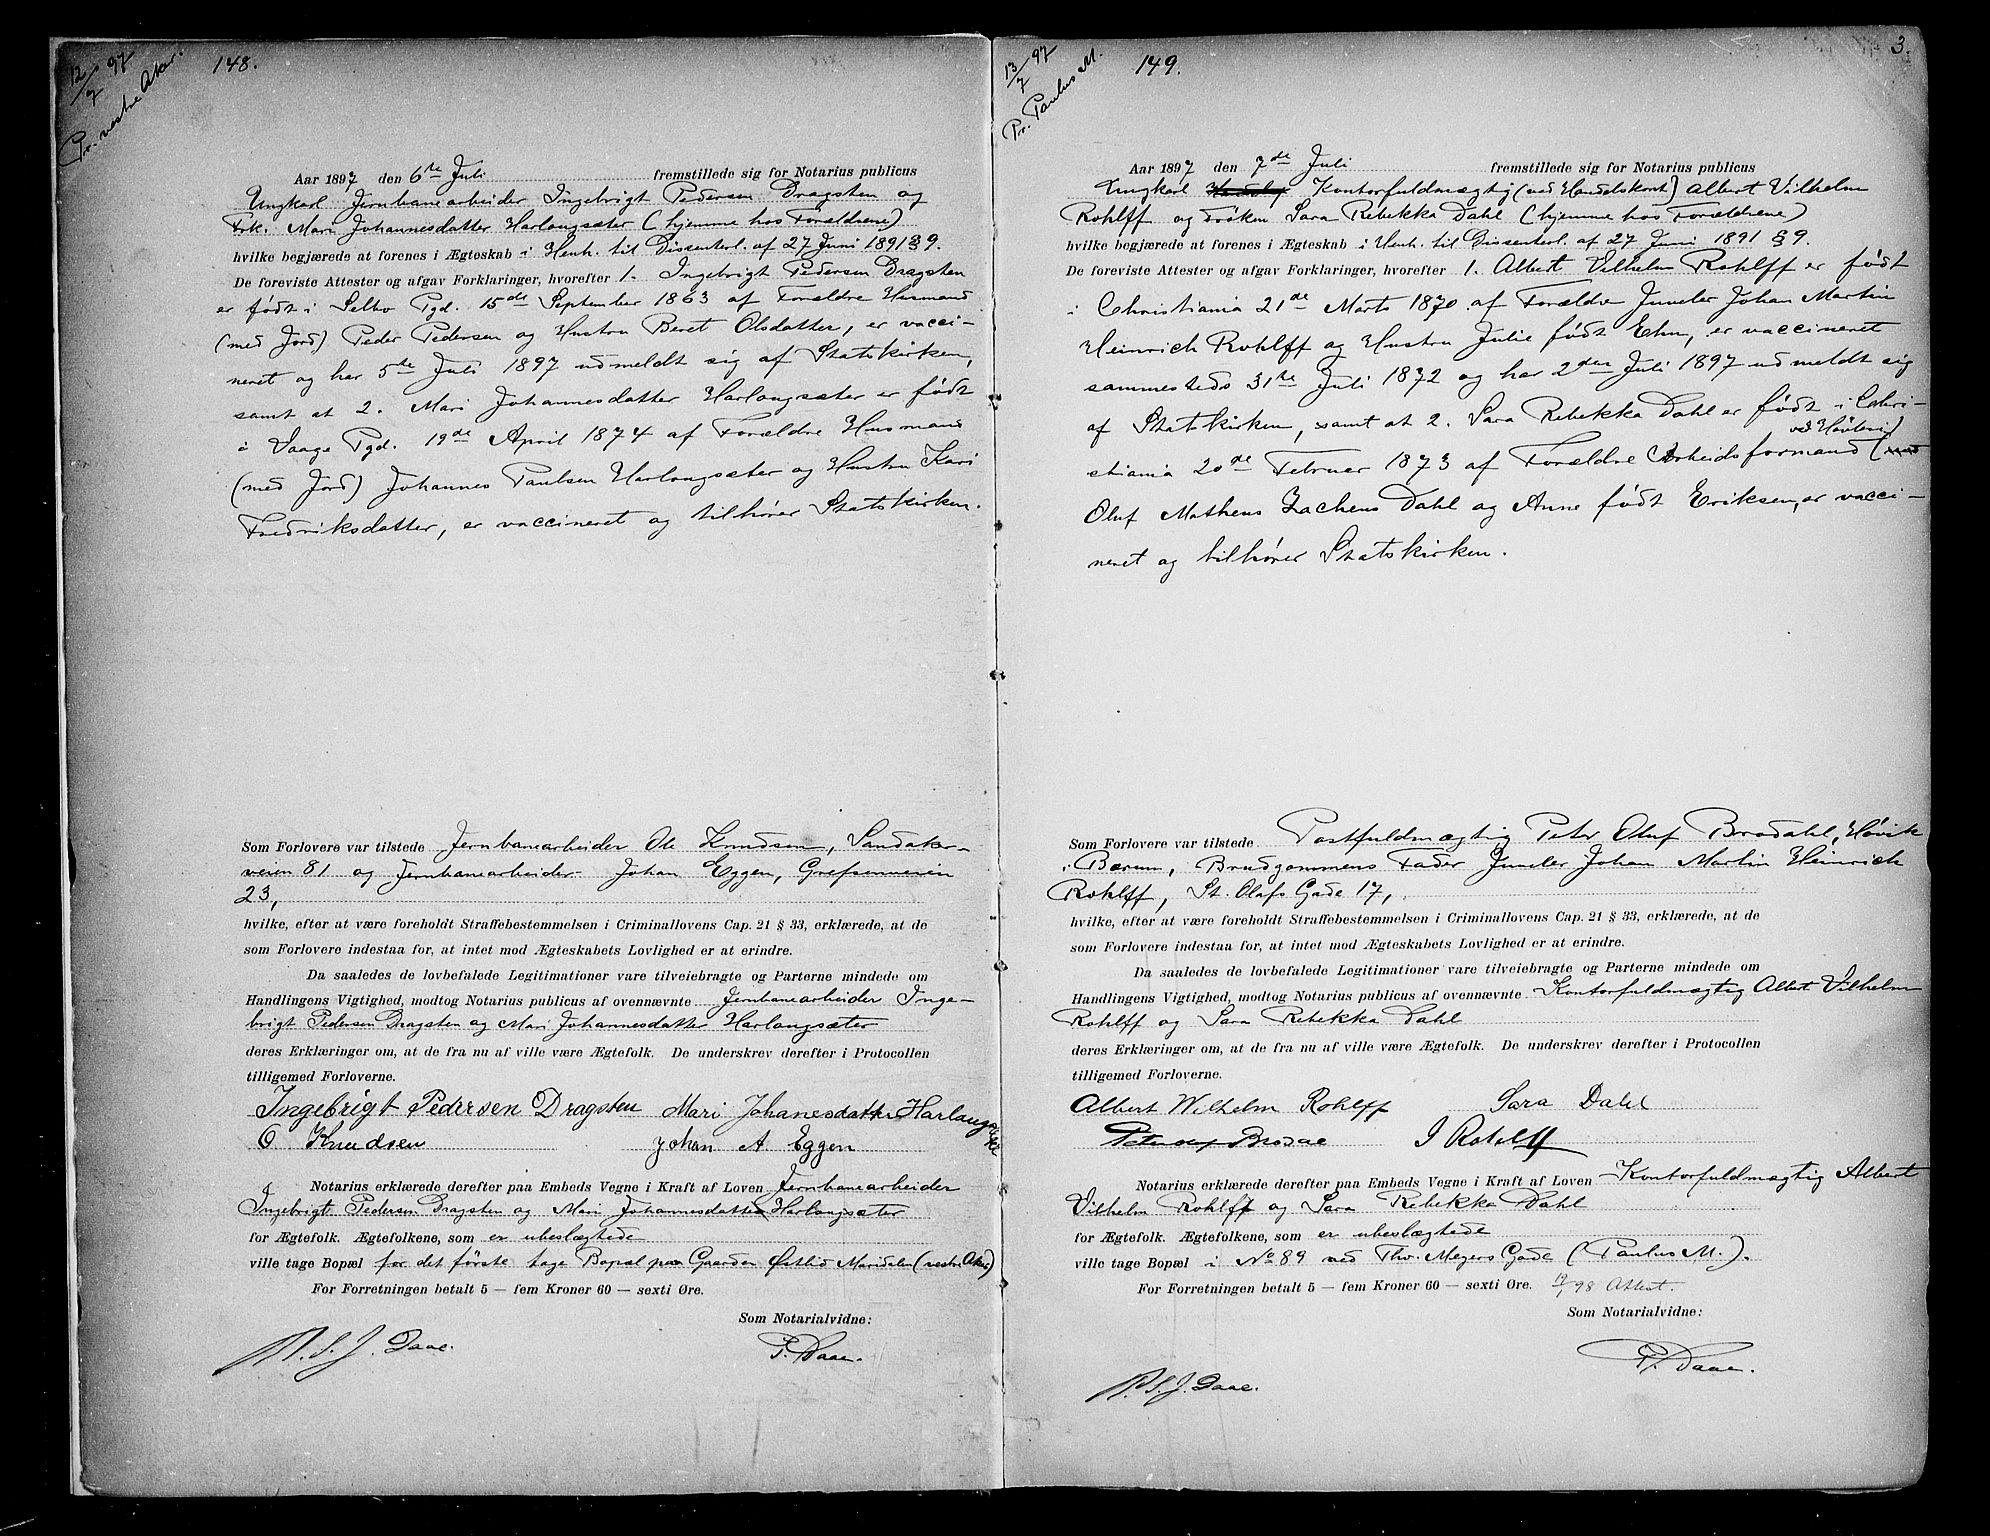 12/7 97
Pr. vestre Aker.
148.
Aar 1897 den 6te Juli fremstillede sig for Notarius publicus
Ungkarl Jernbanearbeider Ingebrigt Pedersen Dragsten og
Frk. Mari Johannesdatter Harlangsæter (hjemme hos Forældrene)
hvilke begjærede at forenes i Ægteskab i Henh. til Dissenterl. af 27 Juni 1891 § 9.
De foreviste Attester og afgav Forklaringer, hvorefter 1. Ingebrigt Pedersen Dragsten
er født i Selbo Pgd. 15de September 1863 af Forældre Husmand
(med Jord) Peder Pedersen og Hustru Beret Olsdatter, er vacci-
neret og har 5te Juli 1897 udmeldt sig af Statskirken,
samt at 2. Mari Johannesdatter Harlangsæter er født
i Vaage Pgd. 19de April 1874 af Forældre Husmand
(med Jord) Johannes Paulsen Harlangsæter og Hustru Kari
Fredriksdatter, er vaccineret og tilhører Statskirken.
Som Forlovere var tilstede Jernbanearbeider Ole Knudsen, Sandaker-
veien 81 og Jernbanearbeider Johan Eggen, Grefsenveien
23,
hvilke, efter at være foreholdt Straffebestemmelsen i Criminallovens Cap. 21 § 33, erklærede, at de
som Forlovere indestaa for, at intet mod Ægteskabets Lovlighed er at erindre.
Da saaledes de lovbefalede Legitimationer vare tilveiebragte og Parterne mindede om
Handlingens Vigtighed, modtog Notarius publicus af ovennævnte Jernbanearbeider Inge-
brigt Pedersen Dragsten og Mari Johannesdatter Harlangsæter
deres Erklæringer om, at de fra nu af ville være Ægtefolk. De underskrev derefter i Protocollen
tilligemed Forloverne.
Ingebrigt Pedersen Dragsten Mari Johanesdatter Harlangsæter
O Knudsen Johan A Eggen
Notarius erklærede derefter paa Embeds Vegne i Kraft af Loven Jernbanearbeider
Ingebrigt Pedersen Dragsten og Mari Johannesdatter Harlangsæter
for Ægtefolk. Ægtefolkene, som er ubeslægtede
ville tage Bopæl for det første tage Bopæl paa Gaarden Østlid Maridalen (vestre Aker)
For Forretningen betalt 5 — fem Kroner 60 — sexti Øre.
Som Notarialvidne:
N. S. J. Daae. P. Daae.
3.
13/7 97
Pr. Paulus M.
149.
Aar 1897 den 7de Juli fremstillede sig for Notarius publicus
Ungkarl Kontorfuldmægtig (ved Handelskont) Albert Vilhelm
Rohlff og Frøken Sara Rebekka Dahl (hjemme hos Forældrene)
hvilke begjærede at forenes i Ægteskab i Henh. til Dissenterl. af 27 Juni 1891 § 9.
De foreviste Attester og afgav Forklaringer, hvorefter 1. Albert Vilhelm Rohlff er født
i Christiania 21de Marts 1870 af Forældre Juveler Johan Martin
Heinrich Rohlff og Hustru Julie født Ehn, er vaccineret
sammesteds 31te Juli 1872 og har 2den Juli 1897 udmeldt sig
af Statskirken, samt at 2. Sara Rebekka Dahl er født i Chri-
stiania 20de Februar 1873 af Forældre Arbeidsformand (
Oluf Matheus Zacheus Dahl og Anne født Eriksen, er vacci-
neret og tilhører Statskirken.
Som Forlovere var tilstede Postfuldmægtig Peter Oluf Brodahl, Høvik
i Bærum, Brudgommens Fader Juveler Johan Martin Heinrich
Rohlff, St. Olafs Gade 17,
hvilke, efter at være foreholdt Straffebestemmelsen i Criminallovens Cap. 21 § 33, erklærede, at de
som Forlovere indestaa for, at intet mod Ægteskabets Lovlighed er at erindre.
Da saaledes de lovbefalede Legitimationer vare tilveiebragte og Parterne mindede om
Handlingens Vigtighed, modtog Notarius publicus af ovennævnte Kontorfuldmægtig Albert Vilhelm
Rohlff og Sara Rebekka Dahl
deres Erklæringer om, at de fra nu af ville være Ægtefolk. De underskrev derefter i Protocollen
tilligemed Forloverne.
Albert Wilhelm Rohlff Sara Dahl
J Rohlff
Notarius erklærede derefter paa Embeds Vegne i Kraft af Loven Kontorfuldmægtig Albert
Vilhelm Rohlff og Sara Rebekka Dahl
for Ægtefolk. Ægtefolkene, som er ubeslægtede
ville tage Bopæl i No 89 ved Thv. Meyers Gade (Paulus M.).
For Forretningen betalt 5 — fem Kroner 60 — sexti Øre. 98 Attest.
Som Notarialvidne:
P. Daae.
N. S. J. Daae.